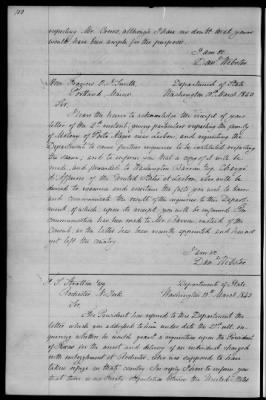 respecting Mr. Crowe, although I have no doubt such
would have been ample for the purpose.
I am &c.
Danl Webster
Hon. Francis O. J. Smith, Department of State
Portland, Maine. Washington 15th March 1843
Sir,
I have the honor to acknowledge the receipt of your
letter of the 2d instant, giving particulars respecting the family
of near Lisbon, and requesting the
Department to cause further inquiries to be instituted respecting
the same, and to inform you that a copy of it will be
made, and forwarded to Washington Barrow Esq. Chargé
d'Affaires of the United States at Lisbon, who will be
desired to examine and ascertain the facts you wish to learn
and communicate the result of the inquiries to this Department
of which upon its receipt you will be informed. The
communication has been made to Mr. Barrow instead of the
Consul, as the latter has been recently appointed and has not
yet left the country.
I am &c.
Danl Webster
Esq. Department of State
Rochester, N. York Washington 15th March 1843
Sir,
The President has referred to this Department the
letter which you addressed to him under date the 21st ult. inquiring
whether he would grant a requisition upon the President
of Texas for the arrest and delivery of an individual charged
with embezzlement at Rochester, who was supposed to have
taken refuge in that country. In reply I have to inform you
that there is no Treaty stipulation between the United States